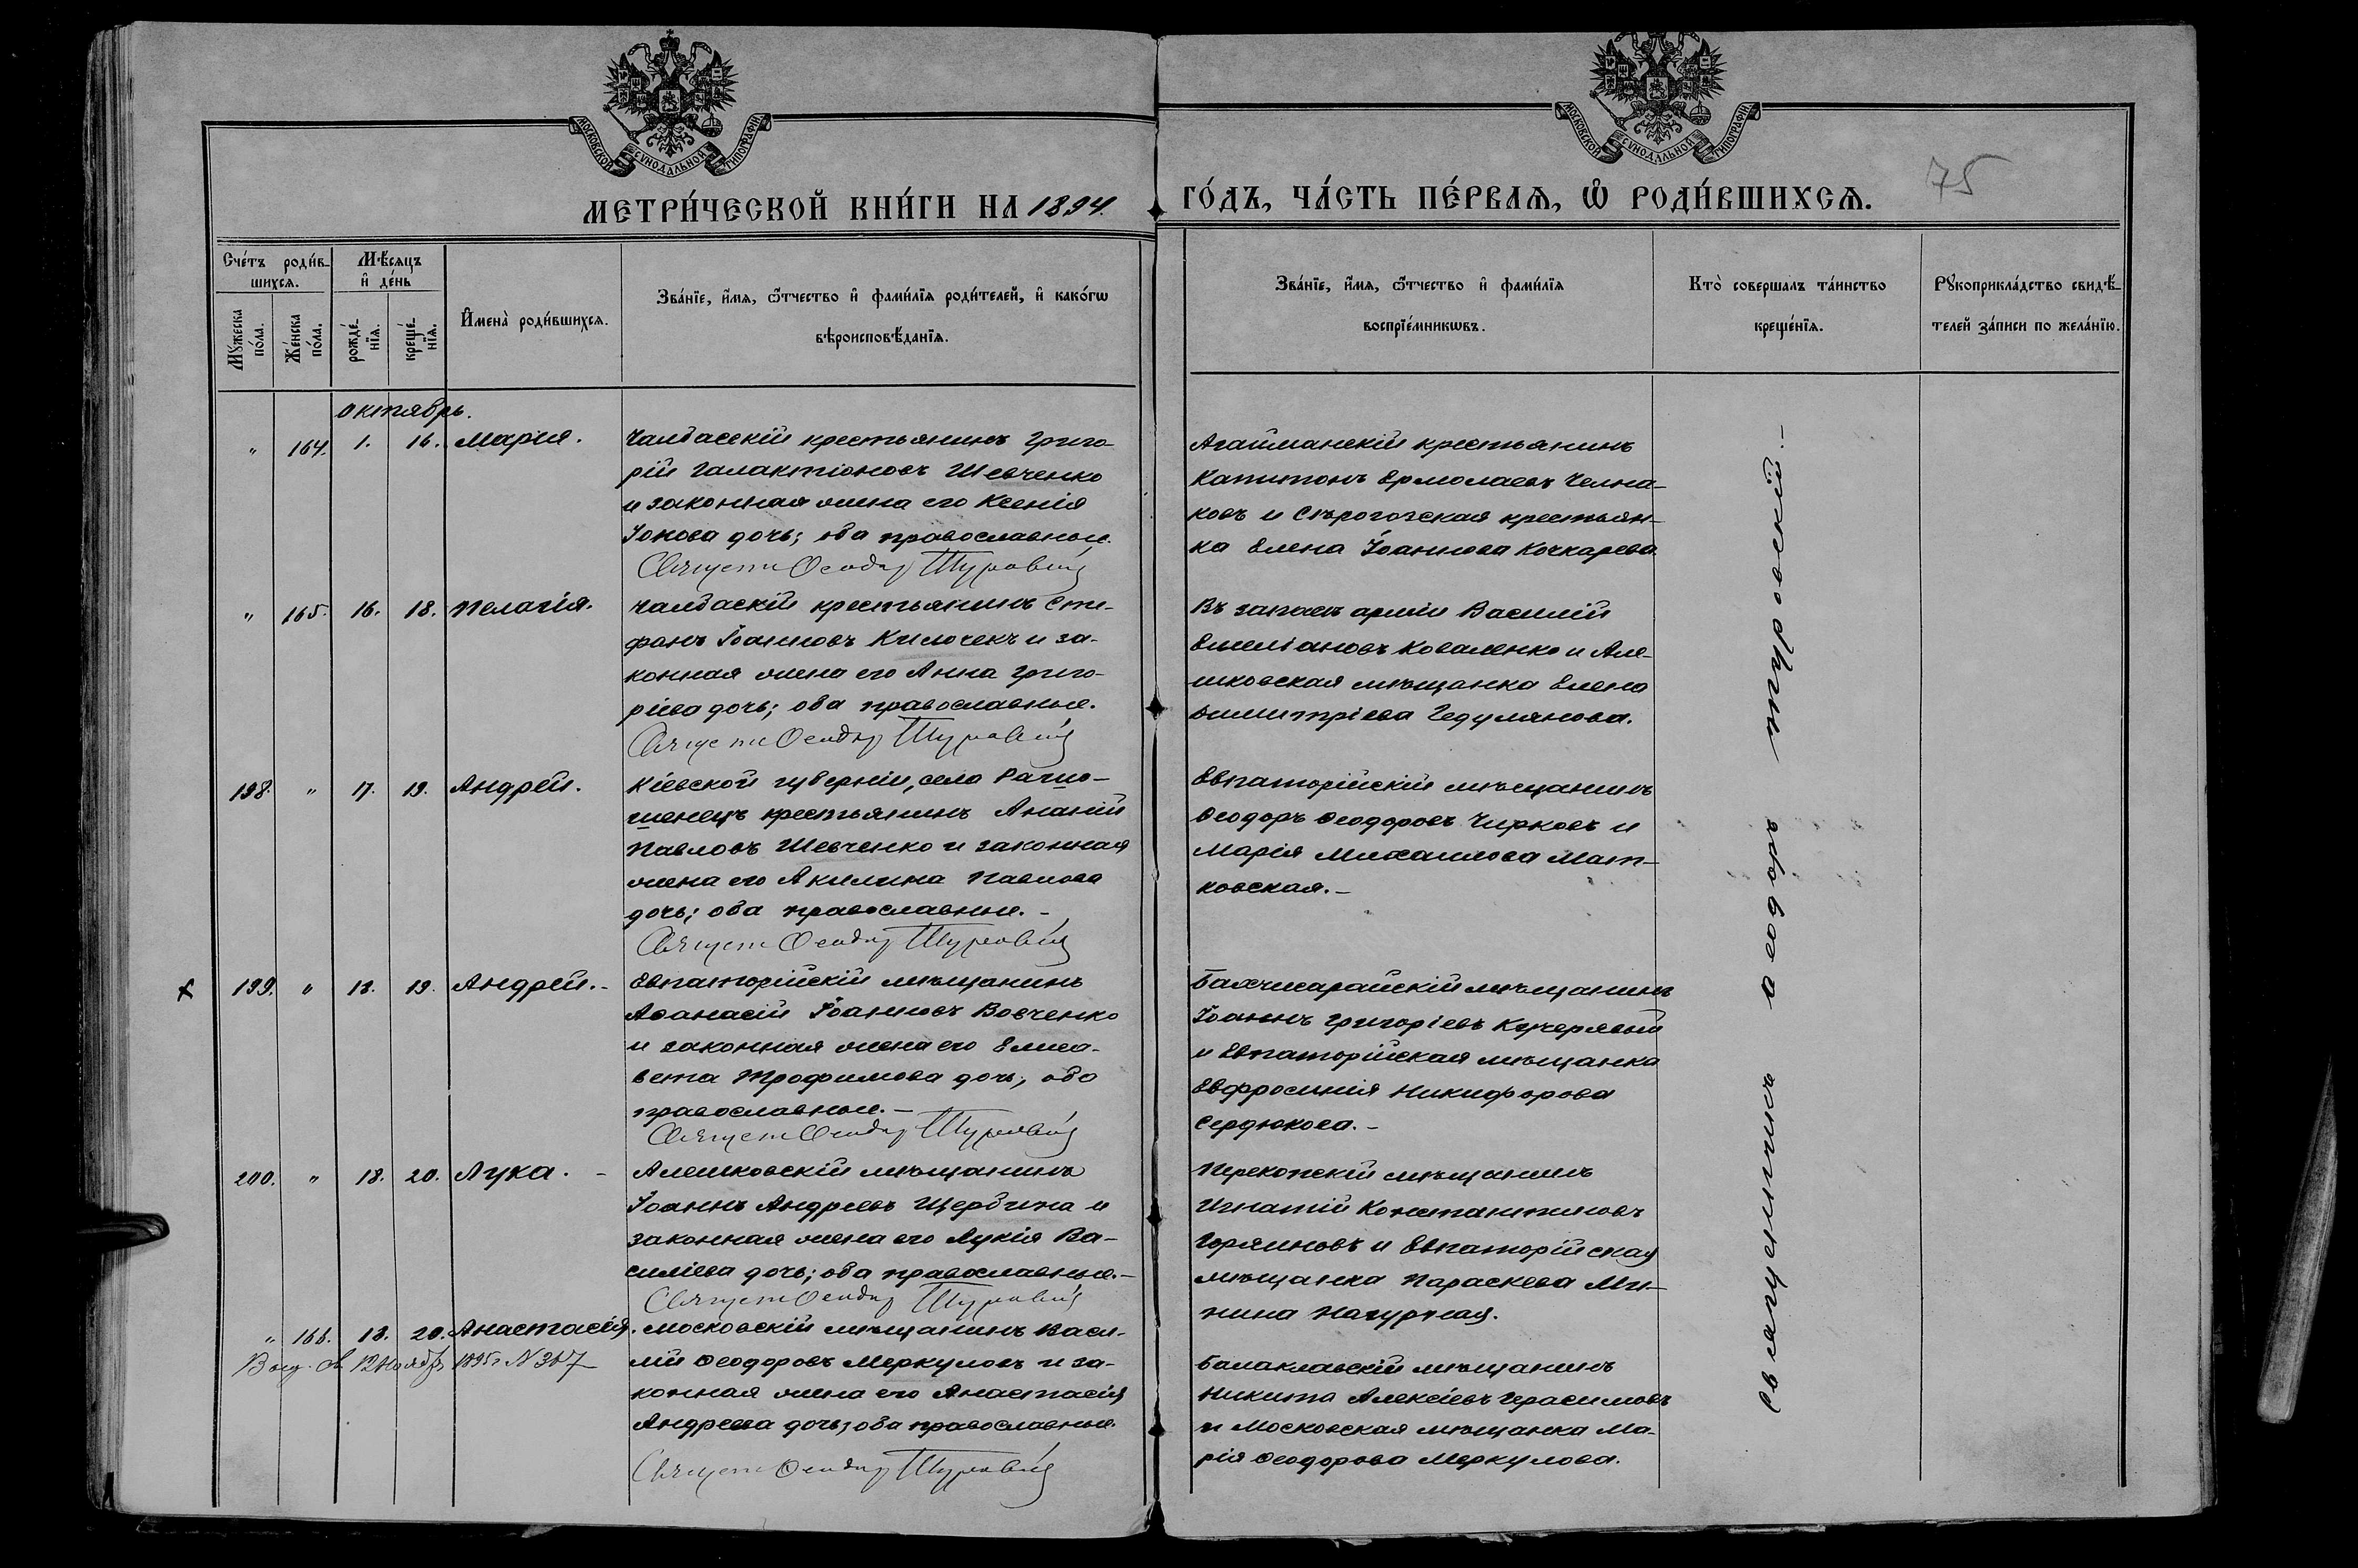 МОСКОВСКОЙ СУНОДАЛЬНОЙ ТИПОГРАФІИ
МОСКОВСКОЙ СУНОДАЛЬНОЙ ТИПОГРАФІИ
75
МЕТРИ́ЧЕСКОЙ КНИ́ГИ НА 1894.
ГО́ДЪ, ЧА́СТЬ ПЕ́РВАѦ, Ѡ҆ РОДИ́ВШИХСѦ.
Сче́тъ роди́в-
шихсѧ.
Мѣ́сѧцъ
и҆ де́нь
Мꙋ́жеска по́ла.
Же́нска по́ла.
рожде́-
нїѧ.
креще́-
нїѧ.
И҆мена̀ роди́вшихсѧ.
Зва́нїе, и҆́мѧ, ѻ҆́тчество и҆ фами́лїѧ роди́телей, и҆ како́гѡ
вѣроисповѣ́данїѧ.
Зва́нїе, и҆́мѧ, ѻ҆́тчество и҆ фами́лїѧ
воспрїе́мникѡвъ.
Кто̀ соверша́лъ та́инство
креще́нїѧ.
Рꙋкоприкла́дство свидѣ́-
телей за́писи по жела́нїю.
Октябрь.
" 164. 1. 16. Марія.
Чалбасскій крестьянинъ Григо-
рій Галактіоновъ Шевченко
и законная жена его Ксенія
Іонова дочь; оба православные.
Священ Ѳеодор Туровскій
Агайманскій крестьянинъ
Капитонъ Ермолаевъ Челна-
ковъ и Сѣрогозская крестьян-
ка Елена Іоаннова Кочкарева
" 165. 16. 18. Пелагія.
Чалбаскій крестьянинъ Сте-
фанъ Іоанновъ Килочекъ и за-
конная жена его Анна Григо-
ріева дочь; оба православные.
Священ Ѳеодор Туровскій
Въ запасѣ арміи Василій
Емеліановъ Коваленко и Але-
шковская мѣщанка Елена
Димитріева Гедулянова.
198. " 17. 19. Андрей.
Кіевской губерніи, село
крестьянинъ Ананій
Павловъ Шевченко и законная
жена его Акилина Павлова
дочь; оба православные. -
Священ Ѳеодор Туровскій
Евпаторійскій мѣщанинъ
Ѳеодоръ Ѳеодоровъ Чирковъ и
Марія Михаилова Мат-
ковская. -
+ 199. " 18. 19. Андрей. -
Евпаторійскій мѣщанинъ
Аѳанасій Іоанновъ Вовченко
и законная жена его Елиса-
вета Трофимова дочь; оба
православные. -
Священ Ѳеодор Туровскій
Бахчисарайскій мѣщанинъ
Іоаннъ Григоріевъ Кучерявый
и Евпаторійская мѣщанка
Евфросинія Никифорова
Сердюкова. -
200. " 18. 20. Лука. -
Алешковскій мѣщанинъ
Іоаннъ Андреевъ Щербина и
законная жена его Лукія Ва-
силіева дочь; оба православные. -
Священ Ѳеодор Туровскій
Перекопскій мѣщанинъ
Игнатій Константиновъ
Горяиновъ и Евпаторійская
мѣщанка Параскева Ми-
нина Нагурная.
" 166. 18. 20. Анастасія.
Выд. св. 12 Ноября 1895 г. N 307
Московскій мѣщанинъ Васи-
лій Ѳеодоровъ Меркуловъ и за-
конная жена его Анастасія
Андреева дочь; оба православные.
Священ Ѳеодор Туровскій
Балаклавскій мѣщанинъ
Никита Алексіевъ Герасимовъ
и Московская мѣщанка Ма-
рія Ѳеодорова Меркулова.
Священникъ Ѳеодоръ Туровскій. -